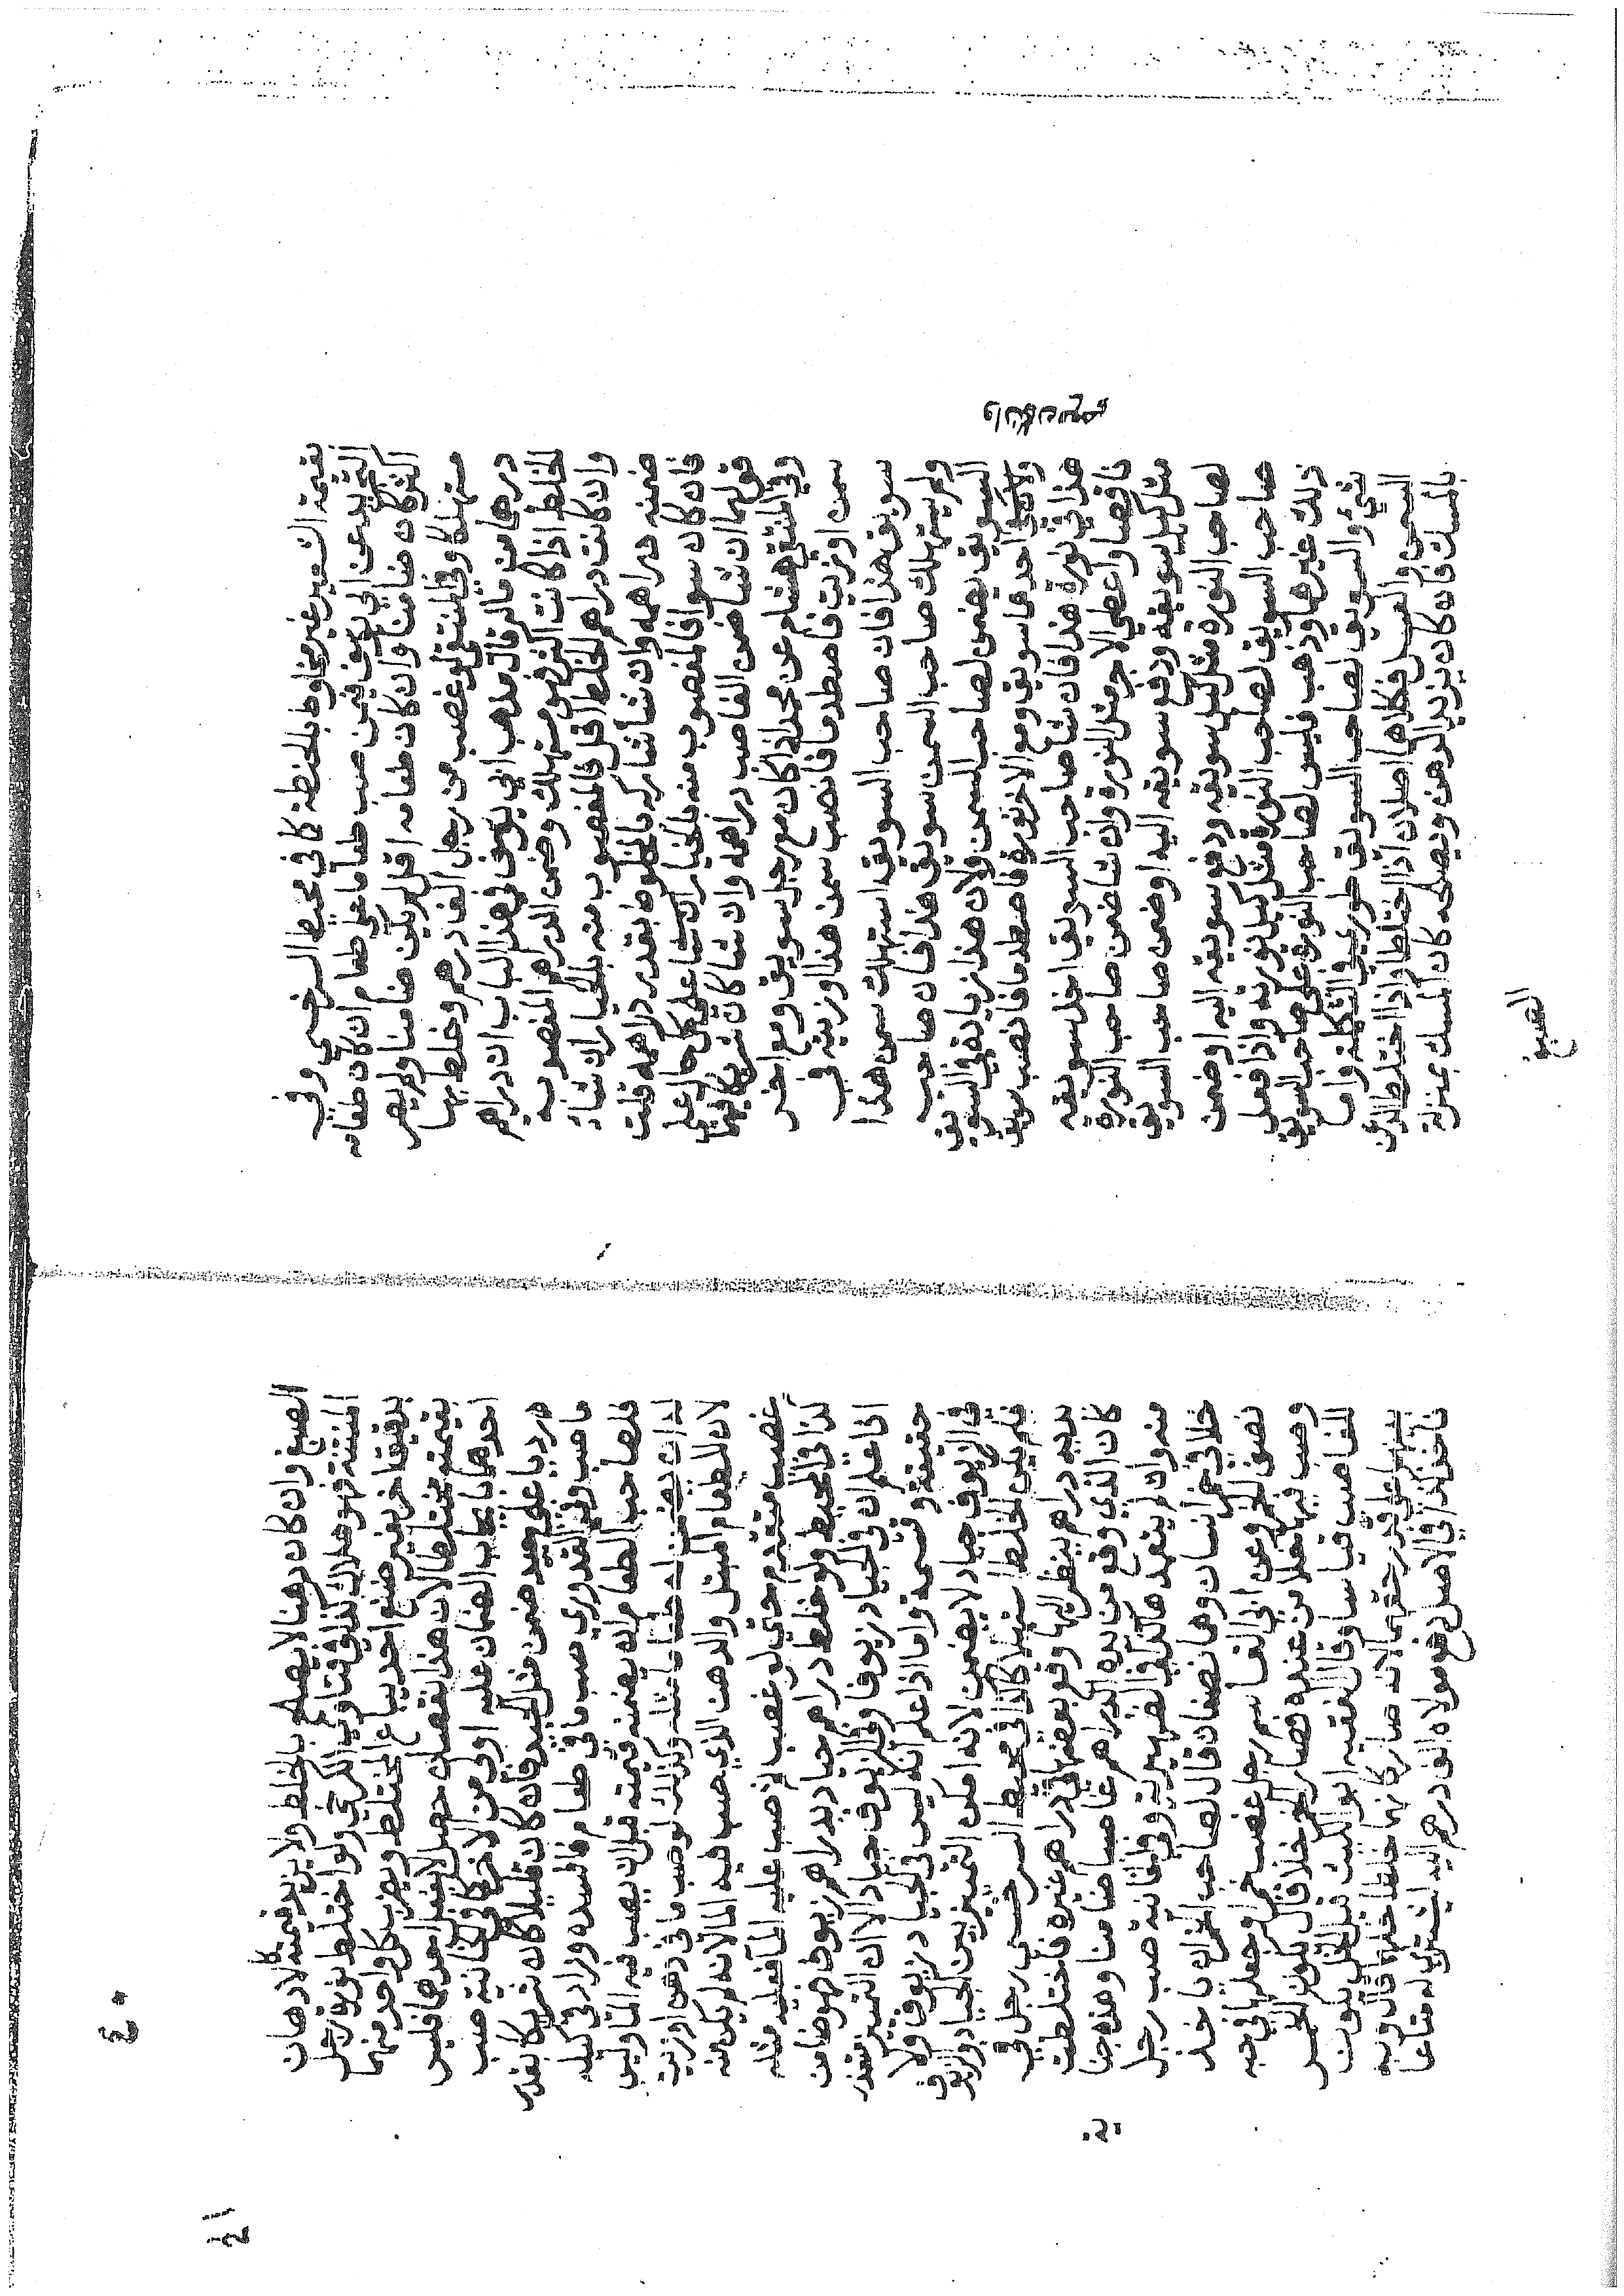 بقيمة الشعير غير مخلوط بالحنطة كما في محيط السرخسي وفي
التجريد عن ابي يوسف فيمن صب طعاما على طعام ان كان طعامه
اكثر كان ضامنا وان كان طعامه اقل لم يكن ضامنا ولم يصر
مستهلكا وفي المنتقى لو غصب من رجل الفا درهم وخلط بها
درهما من ماله قال مذهب ابي يوسف في هذا الباب ان دراهم
الخلط اذا كانت اكثر فهو مستهلك وضمن الدراهم المغصوبه
وان كانت دراهم الخلط اقل فالمغصوب منه بالخيار ان شاء
ضمنه دراهمه وان شاء شاركه بالمخلوط بقدر دراهمه قلت
فان كان سوا فالمغصوب منه بالخيار ان شا على كل حال على
قولهما ان شا ضمن الغاصب دراهمه وان شا كان شريكا فيهما
وفي المنتقى هشام عن محمد اذا كان مع رجل سويق ومع اخر
سمن او زيت فاصطدما فانصب سمن هذا او زيته في
سويق هذا فان صاحب السويق استهلك سمن هذا
ولم يستهلك صاحب السمن سويق هذا فان صاحب
السويق يضمن لصاحب السمن ولان هذا زيادة في السويق
ولو كان مع احدهما سويق ومع الاخر نورة فاصطدما فانصب سويق
هذا في نورة هذا فان شا صاحب السويق اخذ سويقه
ناقصا واعطى الاخر مثل النورة وان شا ضمن صاحب النورة
مثل كيل سويقه ودفع سويقه اليه او ضمن صاحب السويق
لصاحب النورة مثل كيل سويقه ودفع سويقه اليه او ضمن
صاحب السويق لصاحب النورة مثل كيل نورته واذا فعل
ذلك غيرهما وذهب فليس لصاحب النورة على صاحب السويق
شيء والسويق لصاحب السويق طورى في التكملة واما
السمن والعسل فكلاهما اصلان اذا اختلطا واذا اختلط الدهن
بالمسك فانه كان يزيد الدهن ويصلحه كان المسك بمنزلة
الصبغ
الصبغ وان كان دهنا لا يصلح بالخلط ولا يزيد قيمته كالادهان
المنتنة فهو هلاك كذا في فتاوى الكرخي ولو اختلط نورة رجل
بدقيق اخر بغير صنع احد يباع المختلط ويضرب كل واحد منهما
بقيمته مختلطا لان هذا نقصان حصل لا بفعل احدهما فليس
احدهما بايجاب الضمان عليه اولى من الاخر وفي الخانية صب
رديا على جيد ضمن مثل الجيد فان كان قليلا كان شريكا بقدر
ما صب وفي القدوري صب ما في طعام فافسده وزاد في كيله
فلصاحب الطعام ان يضمنه قيمته قبل ان يصب فيه الما وليس
له ان يضمنه مثله وكذلك لو صب ما في دهن او زيت
لان الطعام المبتل والدهن الذي صب فيه الما لانه لم يكن منه
غصب متقدم حتى لو غصب ثم صب عليه الما فعليه مثله
كذا في المحيط ولو خلط دراهم جياد بدراهم زيوف فهو ضامن
اذا علم ان في الجياد زيوفا وفي الزيوف جيادا لان التمييز متعذر
حقيقة وقسمة واما اذا علم انه ليس في الجياد زيوف ولا
في الزيوف جياد لا يضمن لانه امكن التمييز بين الجياد والزيوف
فلم يكن الخلط استهلاكا كذا في محيط السرخسي رجل في
يديه دراهم ينظر اليها وقع بعضها في دراهم غيره فاختلطت
كان الذي وقع من يده الدراهم غاصبا ضامنا وهذه جنا
منه وان لم يتعمدها كذا في الظهيرية وفي الخانية صب رجل
خلا في خمر انسان وهما نصفان قال لصاحب الخمر ان ياخذ
نصف الخمر وعن ابي القاسم رجل غصب خمرا وجعلها في حبه
وصب فيها خلا من عنده فصار الخمر خلا قال يكون الخمر
للغاصب قياسا وقال الفقيه ابو الليث قيل الخل يكون
بينهما على قدر حقهما لانه صار كانهما خلطا خلهما قال وبه
ناخذ كذا في الاصل دفع مولاه الف درهم اليه ليشتري له متاعا
في
٤٠
٤١